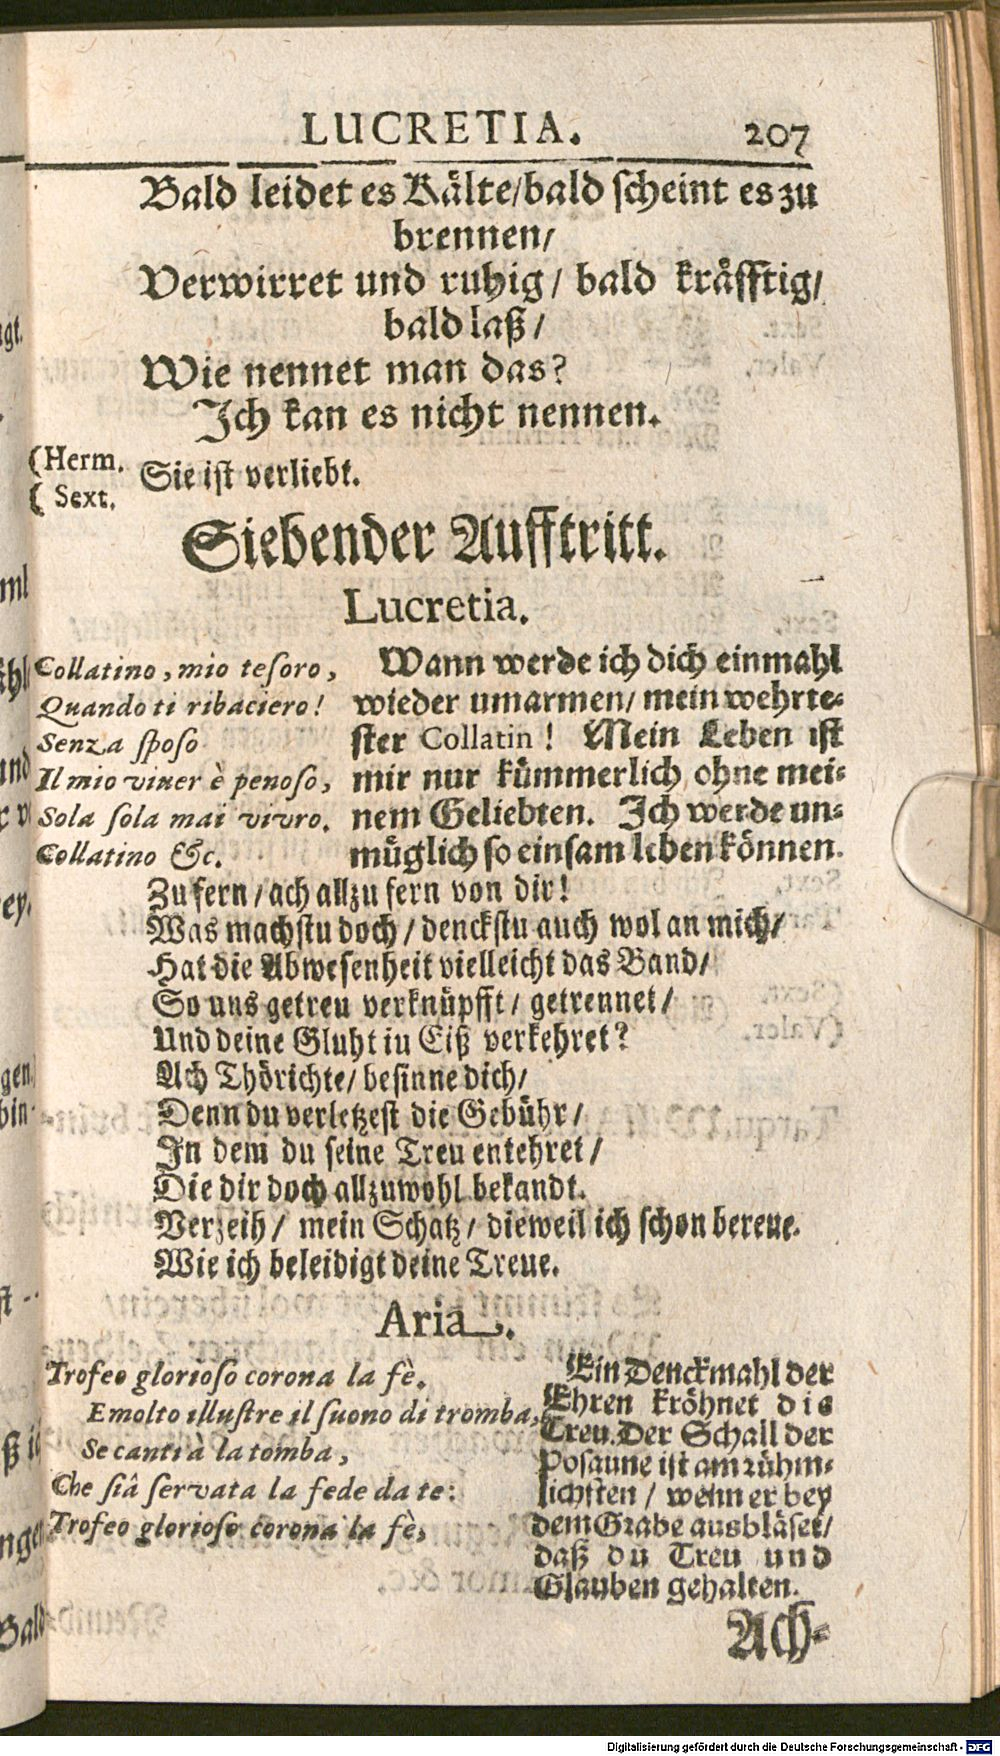 LUCRETIA. 207
Bald leidet es Kälte/bald scheint es zu
brennen/
Verwirret und ruhig/ bald kräfftig/
bald laß/
Wie nennet man das?
Ich kan es nicht nennen.
(Herm.
( Sext.
Sie ist verliebt.
Siebender Aufftritt.
Lucretia.
Collatino, mio tesoro,
Quando ti ribaciero!
Senza sposo
Il mio viuer è penoso,
Sola sola mai vivro.
Collatino &c.
Wann werde ich dich einmahl
wieder umarmen/ mein wehrte-
ster Collatin! Mein Leben ist
mir nur kümmerlich ohne mei-
nem Geliebten. Ich werde un-
müglich so einsam leben können.
Zu fern/ach allzu fern von dir!
Was machstu doch/denckstu auch wol an mich/
Hat die Abwesenheit vielleicht das Band/
So uns getreu verknüpfft/ getrennet/
Und deine Gluht in Eiß verkehret?
Ach Thörichte/ besinne dich/
Denn du verletzest die Gebühr/
In dem du seine Treu entehret/
Die dir doch allzuwohl bekandt.
Verzeih/ mein Schatz/ dieweil ich schon bereue.
Wie ich beleidigt deine Treue.
Aria.
Trofeo glorioso corona la fè.
E molto illustre il suono di tromba,
Se canti à la tomba,
Che siâ servata la fede da te:
Trofeo glorioso corona la fè,
Ein Denckmahl der
Ehren kröhnet die
Treu. Der Schall der
Posaune ist am rühm-
lichsten/ wenn er bey
dem Grabe ausbläset/
daß du Treu und
Glauben gehalten.
Ach-
Digitalisierung gefördert durch die Deutsche Forschungsgemeinschaft - DFG